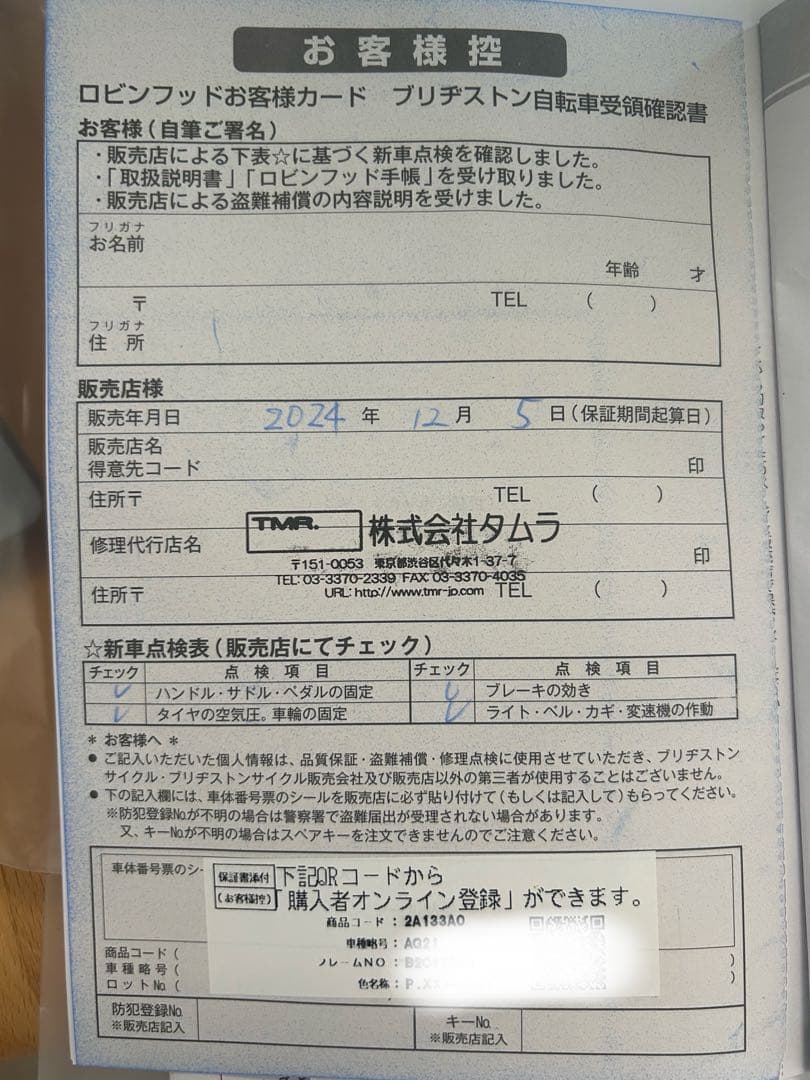 お客様控
ロビンフッドお客様カード ブリヂストン自転車受領確認書
お客様(自筆ご署名)
・販売店による下表☆に基づく新車点検を確認しました。
・「取扱説明書」「ロビンフッド手帳」を受け取りました。
・販売店による盗難補償の内容説明を受けました。
フリガナ
お名前
年齢 才
〒 TEL ( )
フリガナ
住所
販売店様
販売年月日 2024 年 12 月 5 日(保証期間起算日)
販売店名
得意先コード 印
住所〒 TEL ( )
TMR. 株式会社タムラ
修理代行店名 印
〒151-0053 東京都渋谷区代々木1-37-7
TEL:03-3370-2339 FAX:03-3370-4035
URL:http://www.tmr-jp.com
住所〒 TEL ( )
☆新車点検表(販売店にてチェック)
チェック 点検項目 チェック 点検項目
ハンドル・サドル・ペダルの固定 ブレーキの効き
タイヤの空気圧。車輪の固定 ライト・ベル・カギ・変速機の作動
* お客様へ *
● ご記入いただいた個人情報は、品質保証・盗難補償・修理点検に使用させていただき、ブリヂストン
サイクル・ブリヂストンサイクル販売会社及び販売店以外の第三者が使用することはございません。
● 下の記入欄には、車体番号票のシールを販売店に必ず貼り付けて(もしくは記入して)もらってください。
※防犯登録Noが不明の場合は警察署で盗難届出が受理されない場合があります。
又、キーNoが不明の場合はスペアキーを注文できませんのでご注意ください。
車体番号票のシー
保証書添付 下記QRコードから
(お客様控) 「購入者オンライン登録」ができます。
商品コード : 2A133A0
車種略号 : AG21
フレームNO :
色名称 :
商品コード (
車種略号 ( )
ロットNo. ( )
防犯登録No.
※販売店記入
キーNo.
※販売店記入